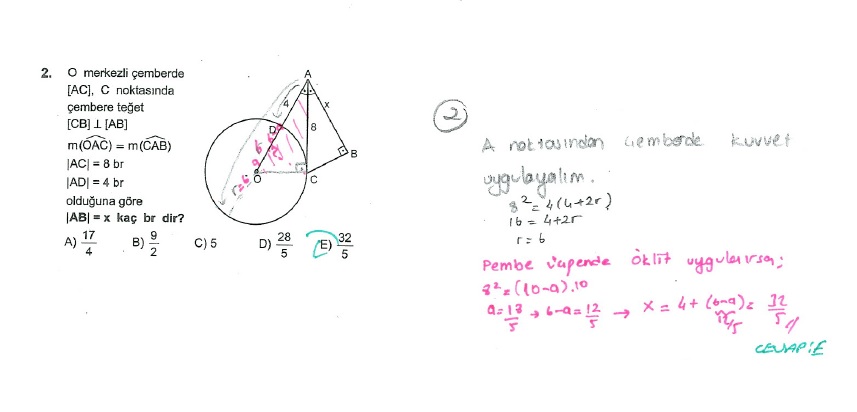 2. O merkezli çemberde
[AC], C noktasında
çembere teğet
[CB] ⊥ [AB]
m(OAC) = m(CAB)
|AC| = 8 br
|AD| = 4 br
olduğuna göre
|AB| = x kaç br dir?
A) 17/4 B) 9/2 C) 5 D) 28/5 E) 32/5
A
4
x
8
D
B
O
C
r=6
a
6-a
2
A noktasından çemberde kuvvet
uygulayalım.
8² = 4(4+2r)
16 = 4+2r
r = 6
Pembe üçgende öklit uygularsa;
8² = (10-a).10
a = 18/5 → 6-a = 12/5 → x = 4 + (6-a) = 32/5
12/5
CEVAP: E